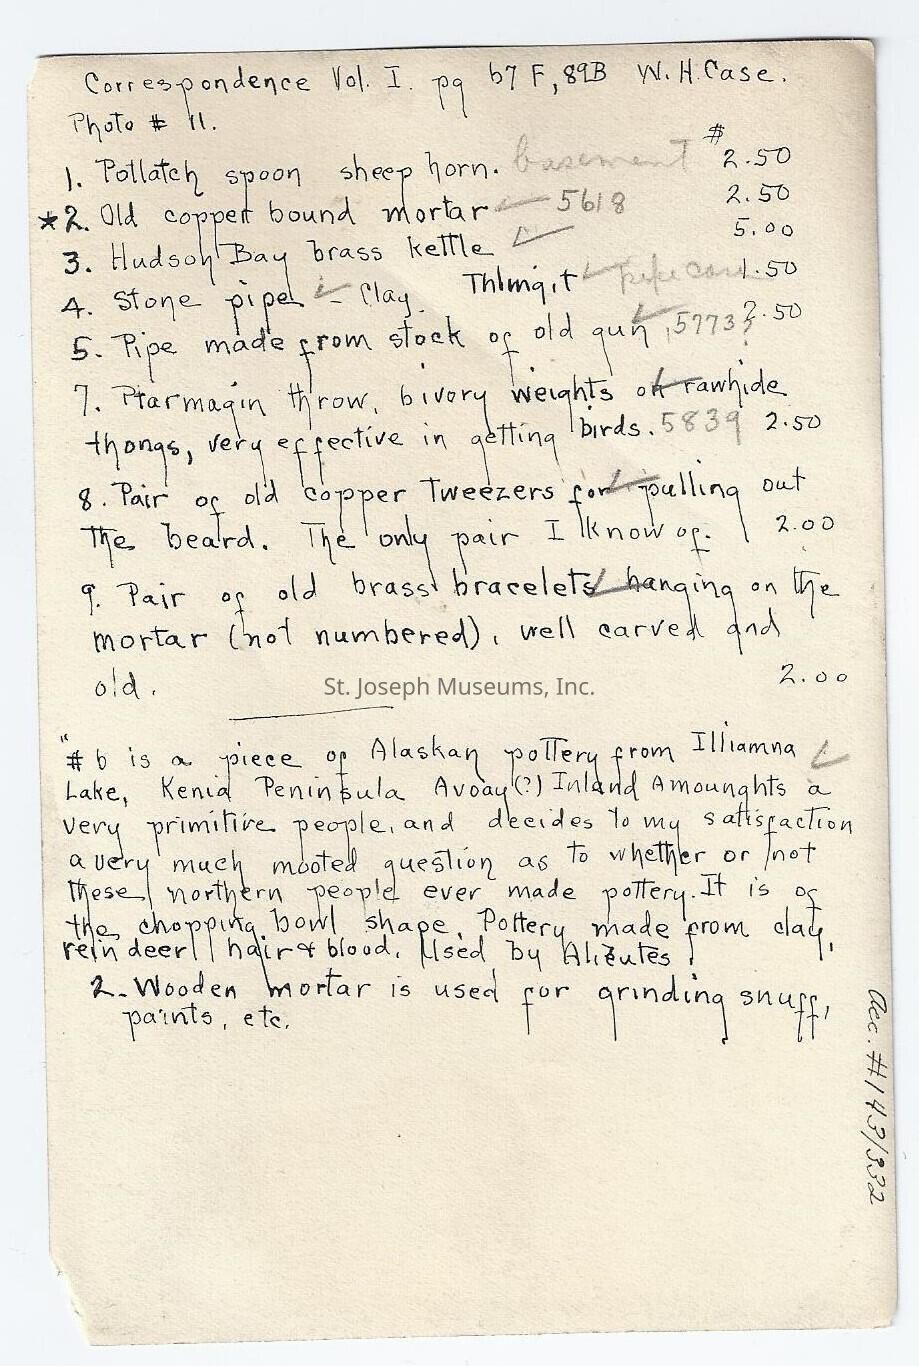 Correspondence Vol. I. pg 67 F, 89B W. H. Case.
Photo # 11.
$
1. Potlatch spoon sheep horn. basement 2.50
*2. Old copper bound mortar 5618 2.50
3. Hudson Bay brass kettle 5.00
4. Stone pipe - Clay. Thlingit pipe case 1.50
5. Pipe made from stock of old gun, 5773? 2.50
7. Ptarmagin throw, 6 ivory weights on rawhide
thongs, very effective in getting birds. 5839 2.50
8. Pair of old copper Tweezers for pulling out
The beard. The only pair I know of. 2.00
9. Pair of old brass bracelets hanging on the
mortar (not numbered), well carved and
old. 2.00
St. Joseph Museums, Inc.
"# 6 is a piece of Alaskan pottery from Illiamna
Lake, Kenia Peninsula Avoay(?) Inland Amounghts a
very primitive people, and decides to my satisfaction
a very much mooted question as to whether or not
these northern people ever made pottery. It is of
the chopping bowl shape. Pottery made from clay,
reindeer hair & blood. Used by Alieutes.
2. Wooden mortar is used for grinding snuff,
paints, etc.
Acc. #143/332